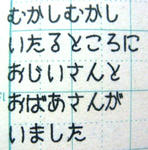 むかしむかし
いたるところに
おじいさんと
おばあさんが
いました